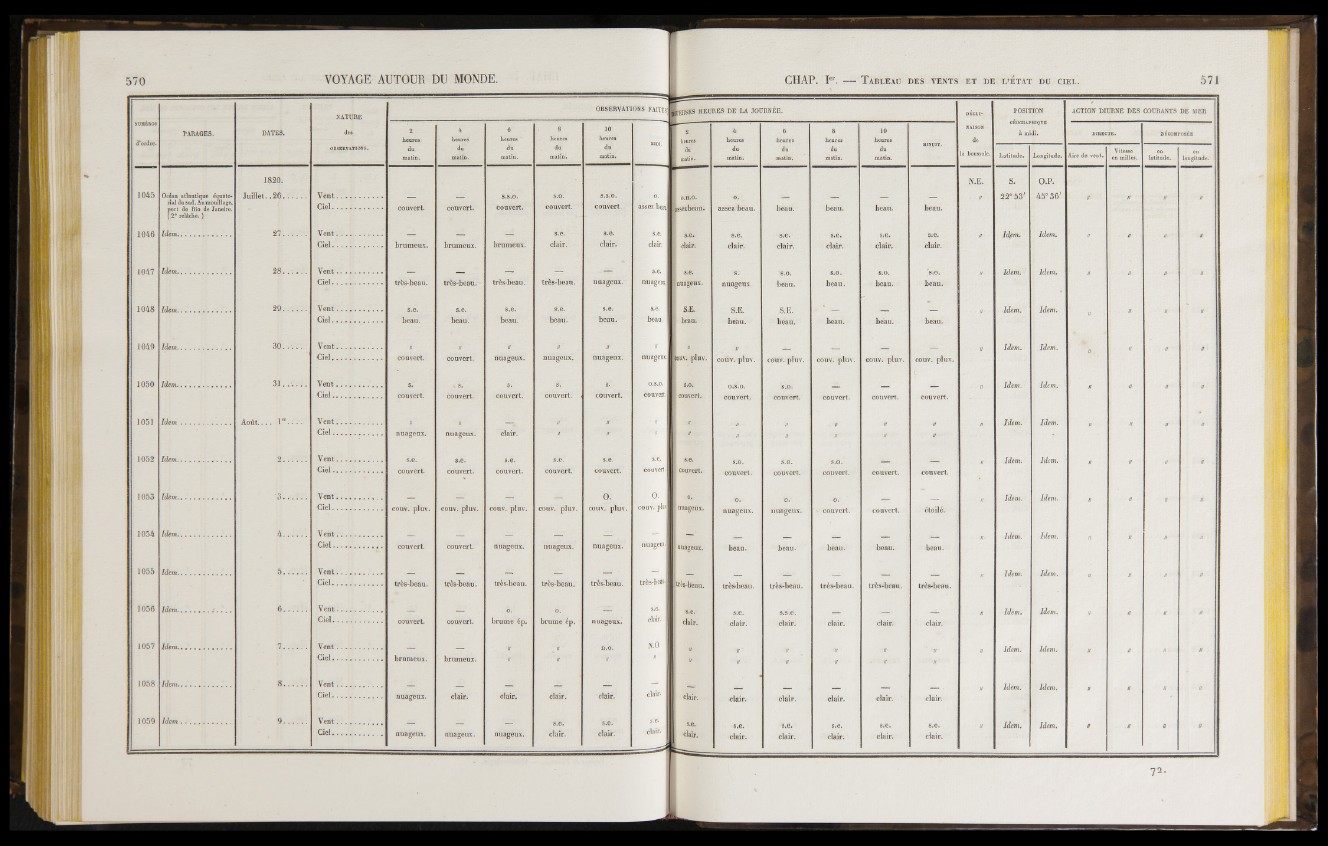 570 VOYAGE AUTOUR DU MONDE.
NUMÉROS d'ordre. PARAGES. DATES. NATURE des OBSERVATIONS. OBSERVATIONS FAITES
2 heures du matin. 4 heures du matin. 6 heures du matin. 8 heures du matin. 10 heures du matin. MIDI.
1820.
1045 Océan atlantique équatorial du sud. Au mouillage, port de Rio de Janeiro. (2e relâche.) Juillet..26. Vent — — s.s.o. s.o. s.s.o. o.
Ciel couvert. couvert. couvert. couvert. couvert. assez beau.
1046 Idem. 27. Vent — — — s.e. s.e. s.e.
Ciel brumeux. brumeux. brumeux. clair. clair. clair.
1047 Idem. 28. Vent — — — — — s.e.
Ciel très-beau. très-beau. très-beau. très-beau. nuageux. nuageux.
1048 Idem. 29. Vent s.e. s.e. s.e. s.e. s.e. s.e.
Ciel beau. beau. beau. beau. beau. beau.
1049 Idem. 30. Vent " " " " " "
Ciel couvert. couvert. nuageux. nuageux. nuageux. nuageux.
1050 Idem. 31. Vent s. s. s. s. s. o.s.o.
Ciel couvert. couvert. couvert. couvert. couvert. couvert.
1051 Idem. Août. 1er. Vent " " — " " "
Ciel nuageux. nuageux. clair. " " "
1052 Idem. 2. Vent s.e. s.e. s.e. s.e. s.e. s.e.
Ciel couvert. couvert. couvert. couvert. couvert. couvert.
1053 Idem. 3. Vent — — — — O. O.
Ciel couv. pluv. couv. pluv. couv. pluv. couv. pluv. couv. pluv. couv. pluv.
1054 Idem. 4. Vent — — — — — —
Ciel couvert. couvert. nuageux. nuageux. nuageux. nuageux.
1055 Idem. 5. Vent — — — — — —
Ciel très-beau. très-beau. très-beau. très-beau. très-beau. très-beau.
1056 Idem. 6. Vent — — o. o. — s.e.
Ciel couvert. couvert. brume ép. brume ép. nuageux. clair.
1057 Idem. 7. Vent — — " " n.o. N.O
Ciel brumeux. brumeux. " " " "
1058 Idem. 8. Vent — — — — — —
Ciel nuageux. clair. clair. clair. clair. clair.
1059 Idem. 9. Vent — — — s.e. s.e. s.e.
Ciel nuageux. nuageux. nuageux. clair. clair. clair.
CHAP. Ier. — TABLEAU DES VENTS ET DE L'ÉTAT DU CIEL. 571
DIVERSES HEURES DE LA JOURNÉE. DÉCLINAISON de la boussole. POSITION GÉOGRAPHIQUE à midi. ACTION DIURNE DES COURANTS DE MER
2 heures du matin. 4 heures du matin. 6 heures du matin. 8 heures du matin. 10 heures du matin. MINUIT. Latitude. Longitude. DIRECTE. DÉCOMPOSÉE
Aire de vent. Vitesse en milles. en latitude. en longitude.
N.E. S. O.P.
o.n.o. o. — — — — " 22° 53' 45° 36' " " " "
assez beau. assez beau. beau. beau. beau. beau.
s.e. s.e. s.e. s.e. s.e. s.e. " Idem. Idem. " " " "
clair. clair. clair. clair. clair. clair.
s.e. s. s.o. s.o. s.o. s.o. " Idem. Idem. " " " "
nuageux. nuageux. beau. beau. beau. beau.
S.E. S.E. S.E. — — — " Idem. Idem. " " " "
beau. beau. beau. beau. beau. beau.
" " — — — — " Idem. Idem. " " " "
couv. pluv. couv. pluv. couv. pluv. couv. pluv. couv. pluv. couv. pluv.
s.o. o.s.o. s.o. — — — " Idem. Idem. " " " "
couvert. couvert. couvert. couvert. couvert. couvert.
" " " " " " " Idem. Idem. " " " "
" " " " " "
s.e. s.o. s.o. s.o. — — " Idem. Idem. " " " "
couvert. couvert. couvert. couvert. couvert. couvert.
o. o. o. o. — — " Idem. Idem. " " " "
nuageux. nuageux. nuageux. couvert. couvert. étoilé.
— — — — — — " Idem. Idem. " " " "
nuageux. beau. beau. beau. beau. beau.
— — — — — — " Idem. Idem. " " " "
très-beau. très-beau. très-beau. très-beau. très-beau. très-beau.
s.e. s.e. s.s.e. — — — " Idem. Idem. " " " "
clair. clair. clair. clair. clair. clair.
" " " " " " " Idem. Idem. " " " "
" " " " " "
— — — — — — " Idem. Idem. " " " "
clair. clair. clair. clair. clair. clair.
s.e. s.e. s.e. s.e. s.e. s.e. " Idem. Idem. " " " "
clair. clair. clair. clair. clair. clair.
72.